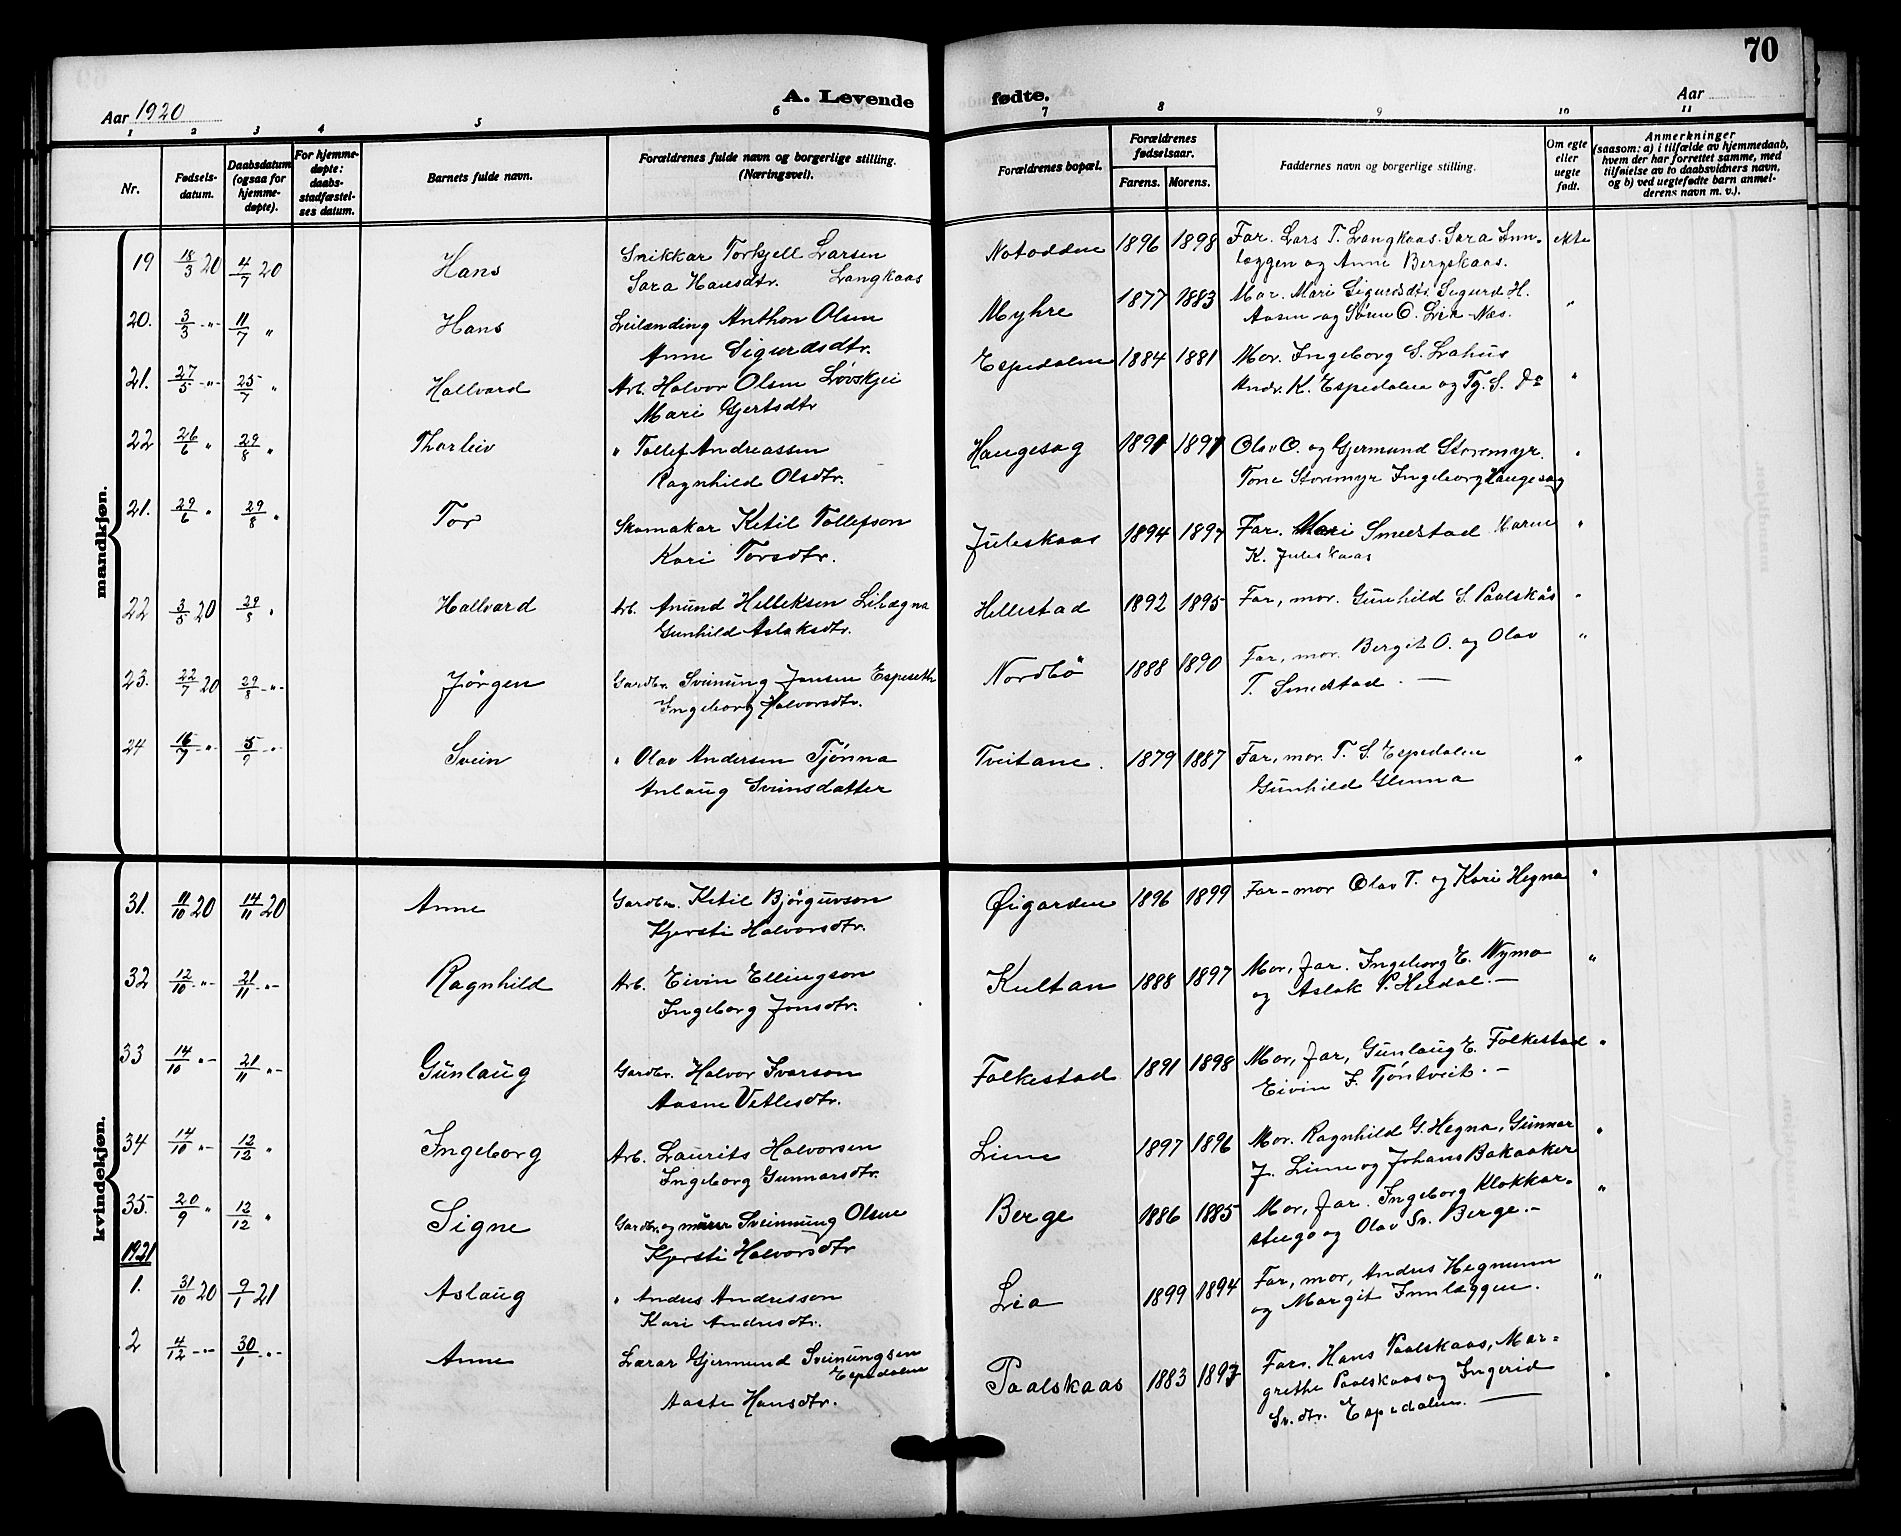 70
Aar 1920
A. Levende fødte.
Aar
1 2 3 4 5 6 7 8 9 10 11
Nr.
Fødsels-
datum.
Daabsdatum
(ogsaa for
hjemme-
døpte).
For hjemme-
døpte:
daabs-
stadfæstel-
ses datum.
Barnets fulde navn.
Forældrenes fulde navn og borgerlige stilling.
(Næringsvei).
Forældrenes bopæl.
Forældrenes
fødselsaar.
Farens. Morens.
Faddernes navn og borgerlige stilling.
Om egte
eller
uegte
født.
Anmerkninger
(saasom: a) i tilfælde av hjemmedaab,
hvem der har forrettet samme, med
tilføielse av to daabsvidners navn,
og b) ved uegtefødte barn anmel-
derens navn m. v.).
mandkjøn.
19 18/3 20 4/7 20 Hans Snikkar Torkjell Larsen Notodden 1896 1898 Far. Lars T. Langkaas. Sara Inn- ekte
Sara Hansdtr. Langkaas læggen og Anne Bergskaas.
20. 3/3 -"- 11/7 " Hans Leilænding Anthon Olsen Myhre 1877 1883 Mor. Mari Sigurdsdtr Sigurd H. "
Anne Sigurdsdtr. Aasen og Søren O. Lia - Næs.
21. 27/5 -"- 25/7 " Hallvard Arb. Halvor Olsen Løvskjei Espedalen 1884 1881 Mor. Ingeborg S. Lahus
Mari Gjertsdtr Andr. K. Espedalen og Tg. S. do "
22 26/6 " 29/8 " Thorleiv " Tollef Andreassen Haugesag 1891 1891 Olav O. og Gjermund Storemyr. "
Ragnhild Olsdtr. Tone Storemyr Ingeborg Haugesag
21. 29/6 " 29/8 " Tor Skomakar Ketil Tollefson Juleskaas 1894 1897 Far. Mari Smedstad Maren "
Kari Torsdtr. K. Juleskaas
22 3/5 20 29/8 " Hallvard Arb. Anund Helleksen Lihægna Hellestad 1892 1895 Far, mor. Gunhild S. Paalskås "
Gunhild Aslaksdtr.
23. 22/7 20 29/8 -"- Jørgen Gardbr. Sveinung Jonsen Espeseth Nordbö 1888 1890 Far, mor. Bergit O. og Olav "
Ingeborg Halvorsdtr. T. Smedstad. —
24 16/7 -"- 5/9 -"- Svein " Olav Andersen Tjønna Tveitane. 1879 1887 Far, mor. T. S. Espedalen "
Anlaug Sveinsdatter Gunhild Glenna
kvindekjøn.
31. 11/10 20 14/11 20 Anne Gardbr. Ketil Bjørguvson Øigarden 1896 1899 Far - mor Olav T. og Kari Hegna "
Kjersti Halvorsdtr.
32 12/10 -"- 21/11 -"- Ragnhild Arb. Eivin Ellingson Kultan 1888 1897 Mor, far. Ingeborg E. Nymo "
Ingeborg Jonsdtr. og Aslak P. Heidal. —
33 14/10 "- 21/11 "- Gunlaug Gardbr. Halvor Ivarson Folkestad 1891 1898 Mor, far, Gunlaug E. Folkestad "
Aasne Vetlesdtr. Eivin F. Tjöntveit. —
34 14/10 "- 12/12 " Ingeborg Arb. Laurits Halvorsen Linne 1897 1896 Mor. Ragnhild G. Hegna, Gunnar "
Ingeborg Gunnarsdtr. J. Linne og Johans Bakaaker
35. 20/9 " 12/12 " Signe Gardbr. og murer Sveinung Olsen Berge 1886 1885 Mor, far. Ingeborg Klokkar- "
Kjersti Halvorsdtr stugo og Olav Sv. Berge. —
1921
1. 31/10 20 9/1 21 Aslaug " Andres Andresson Lia 1899 1894 Far, mor, Andres Hegnunn "
Kari Andresdtr. og Margit Innlæggen.
2 4/12 -"- 30/1 "- Anne Lærar Gjermund Sveinungsen Paalskaas 1883 1897 Far. Hans Paalskaas, Mar-
Espedalen grethe Paalskaas og Ingerid "
Aaste Hansdtr. Sv. dtr. Espedalen. —